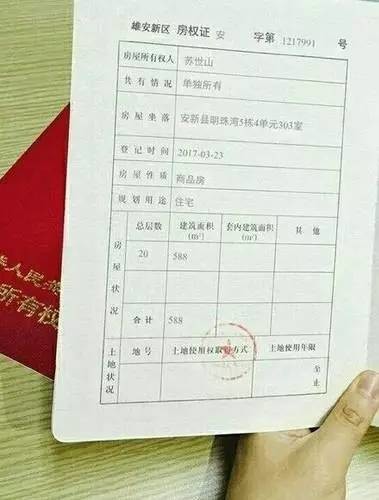 雄安新区 房权证 安 字第 1217991 号
房屋所有权人 苏世山
共有情况 单独所有
房屋坐落 安新县明珠湾5栋4单元303室
登记时间 2017-03-23
房屋性质 商品房
规划用途 住宅
房屋状况 总层数 建筑面积(m²) 套内建筑面积(m²) 其他
20 588
合计 588
土地状况 地号 土地使用权取得方式 土地使用年限
至
止
人民共
所有权